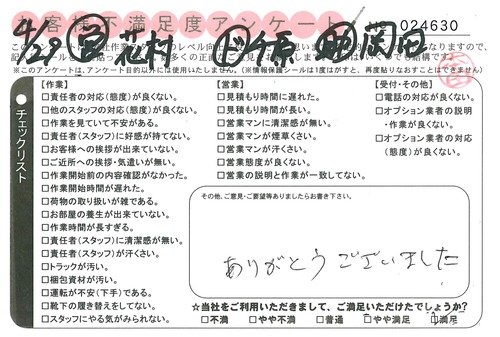 お客様不満足度アンケート
024630
4/29 花村 原 岡田
※このアンケートは、アンケート目的以外には使用いたしません。(※情報保護シールは1度がすと、再度貼りなおすことはできません)
チェックリスト
【作業】
□責任者の対応(態度)が良くない。
□他のスタッフの対応(態度)が良くない。
□作業を見ていて不安がある。
□責任者(スタッフ)に好感が持てない。
□お客様への挨拶が出来ていない。
□ご近所への挨拶・気遣いが無い。
□作業開始前の内容確認がなかった。
□作業開始時間が遅れた。
□荷物の取り扱いが雑である。
□お部屋の養生が出来ていない。
□作業時間が長すぎる。
□責任者(スタッフ)に清潔感が無い。
□責任者(スタッフ)が汗くさい。
□トラックが汚い。
□梱包資材が汚い。
□運転が不安(下手)である。
□靴下の履き替えをしてない。
□スタッフにやる気がみられない。
【営業】
□見積もり時間に遅れた。
□見積もり時間が長い。
□営業マンに清潔感が無い。
□営業マンが煙草くさい。
□営業マンが汗くさい。
□営業態度が良くない。
□営業の説明と作業が一致してない。
【受付・その他】
□電話の対応が良くない。
□オプション業者の説明
・作業が良くない。
□オプション業者の対応
(態度)が良くない。
その他、ご意見・ご要望等ありましたらお書き下さい。
ありがとうございました
☆当社をご利用いただきまして、ご満足いただけたでしょうか?
□不満 □やや不満 □普通 □やや満足 □満足